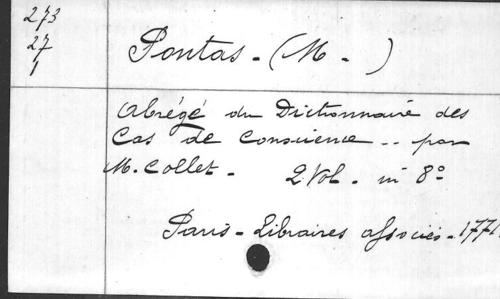 273
27
1
Pontas - (M - )
Abrégé du Dictionnaire des
Cas de Conscience .. par
M. Collet - 2 Vol. in 8º
Paris - Libraires associés - 1771.